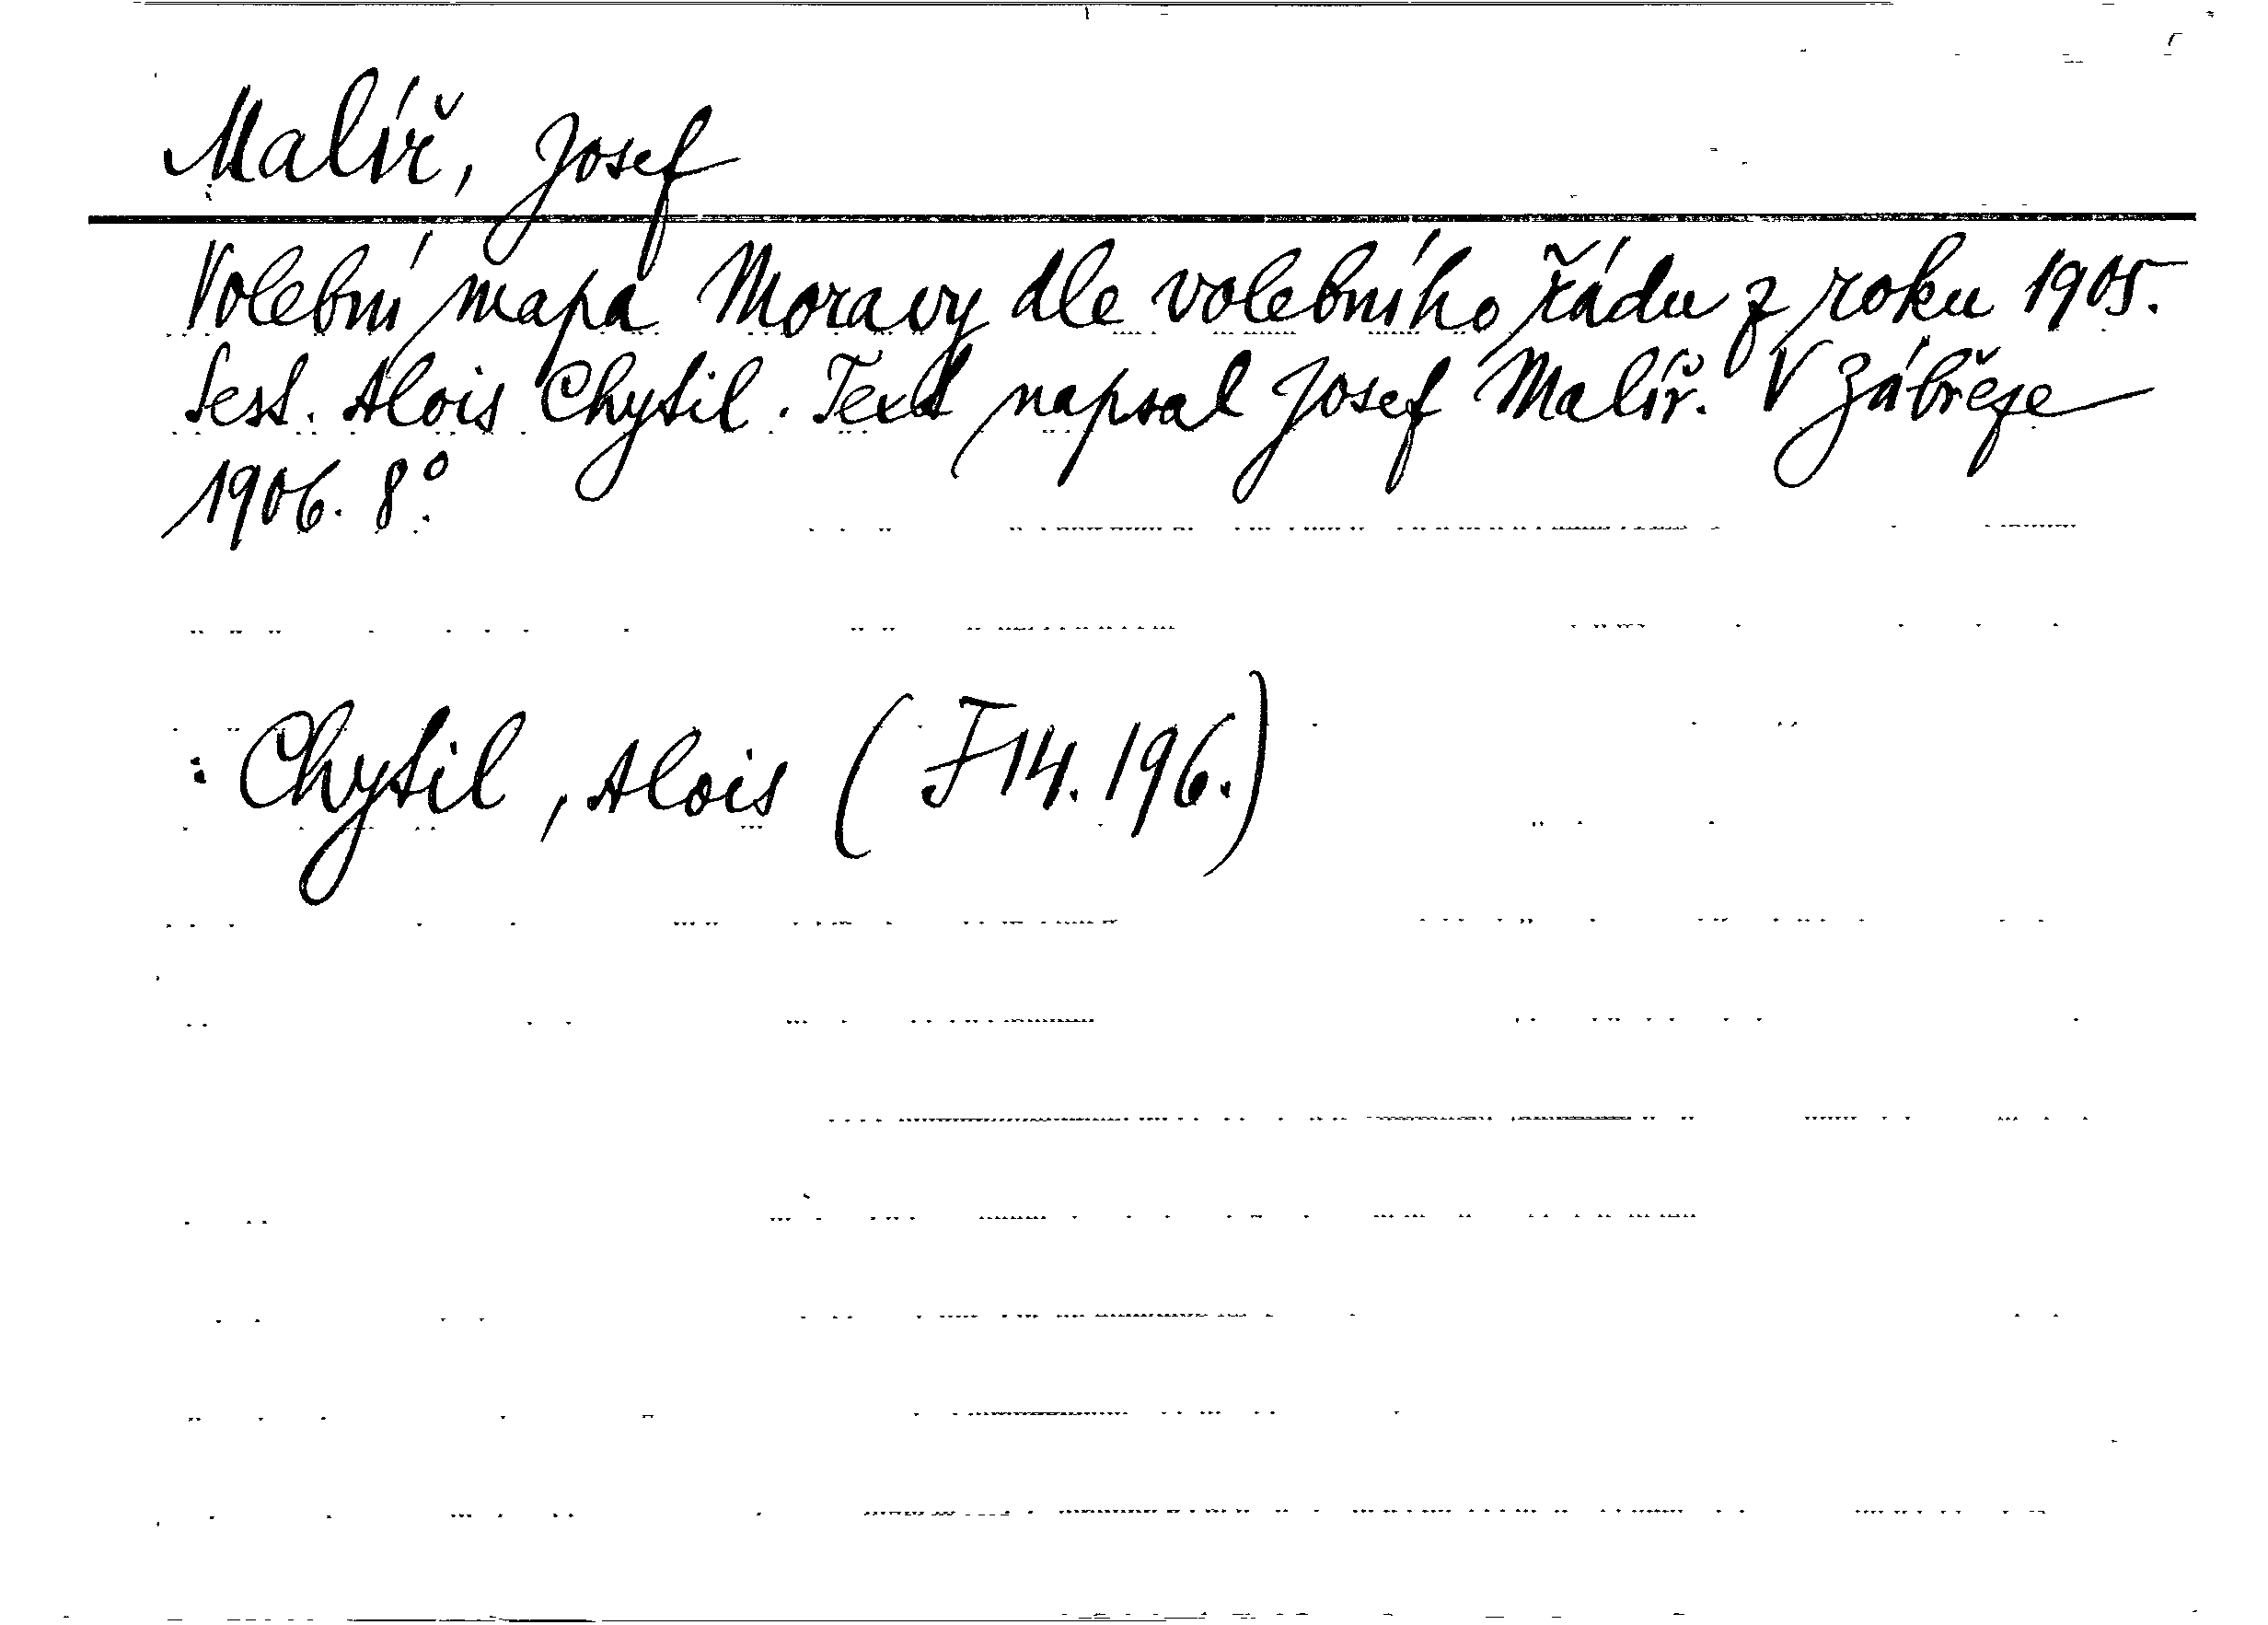 Malíř, Josef
Volební mapa Moravy dle volebního řádu z roku 1905.
Sest. Alois Chytil. Text napsal Josef Malíř. V Zábřeze
1906. 8°.
: Chytil, Alois (F 14.196.)